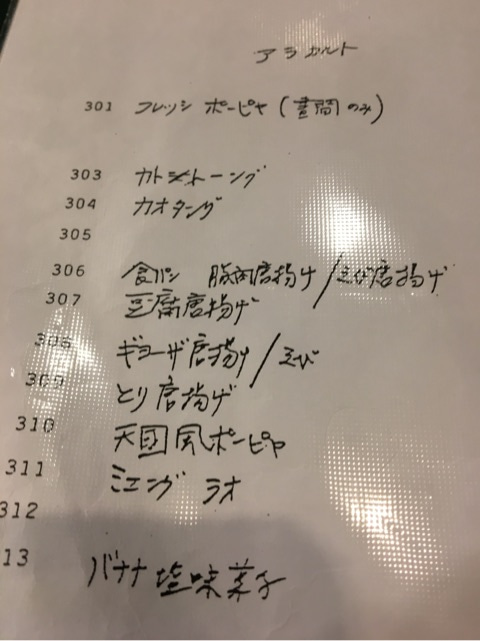 アラカルト
301 フレッシ ポーピヤ (昼間のみ)
303 カトントーング
304 カオタング
305
306 食パン 豚肉唐揚げ/えび唐揚げ
307 豆腐唐揚げ
308 ギョーザ唐揚げ/えび
309 とり唐揚げ
310 天国風ポーピヤ
311 ミエング ラオ
312
13 バナナ塩味菓子